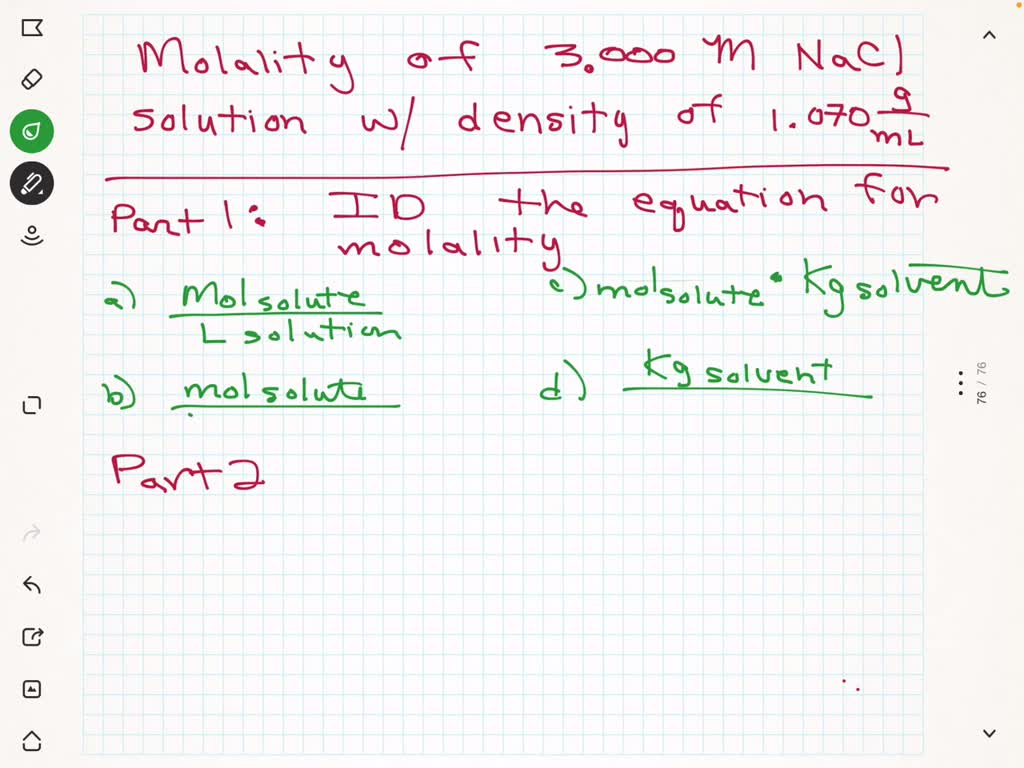 Molality of 3.000 M NaCl
solution w/ density of 1.070 g/mL
Part 1: ID the equation for
molality
a) Mol solute
L solution
c) mol solute • Kg solvent
b) mol solute
d) Kg solvent
Part 2
76 / 76